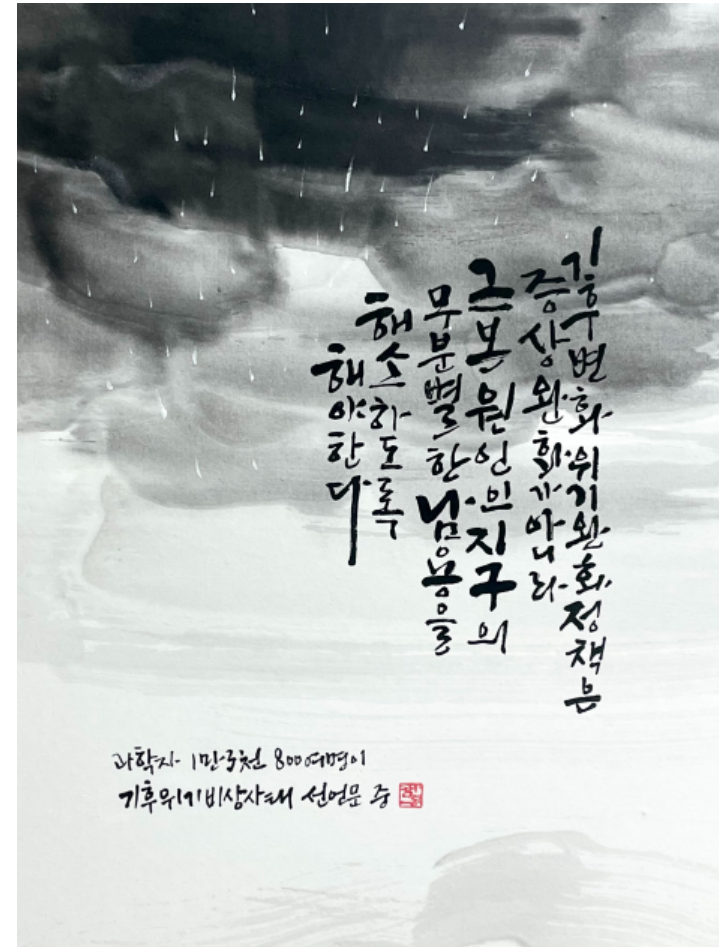 기후변화위기완화정책은
증상완화가아니라
근본원인인지구의
무분별한남용을
해소하도록
해야한다
과학자 1만3천 800여명이
기후위기비상사태 선언문 중